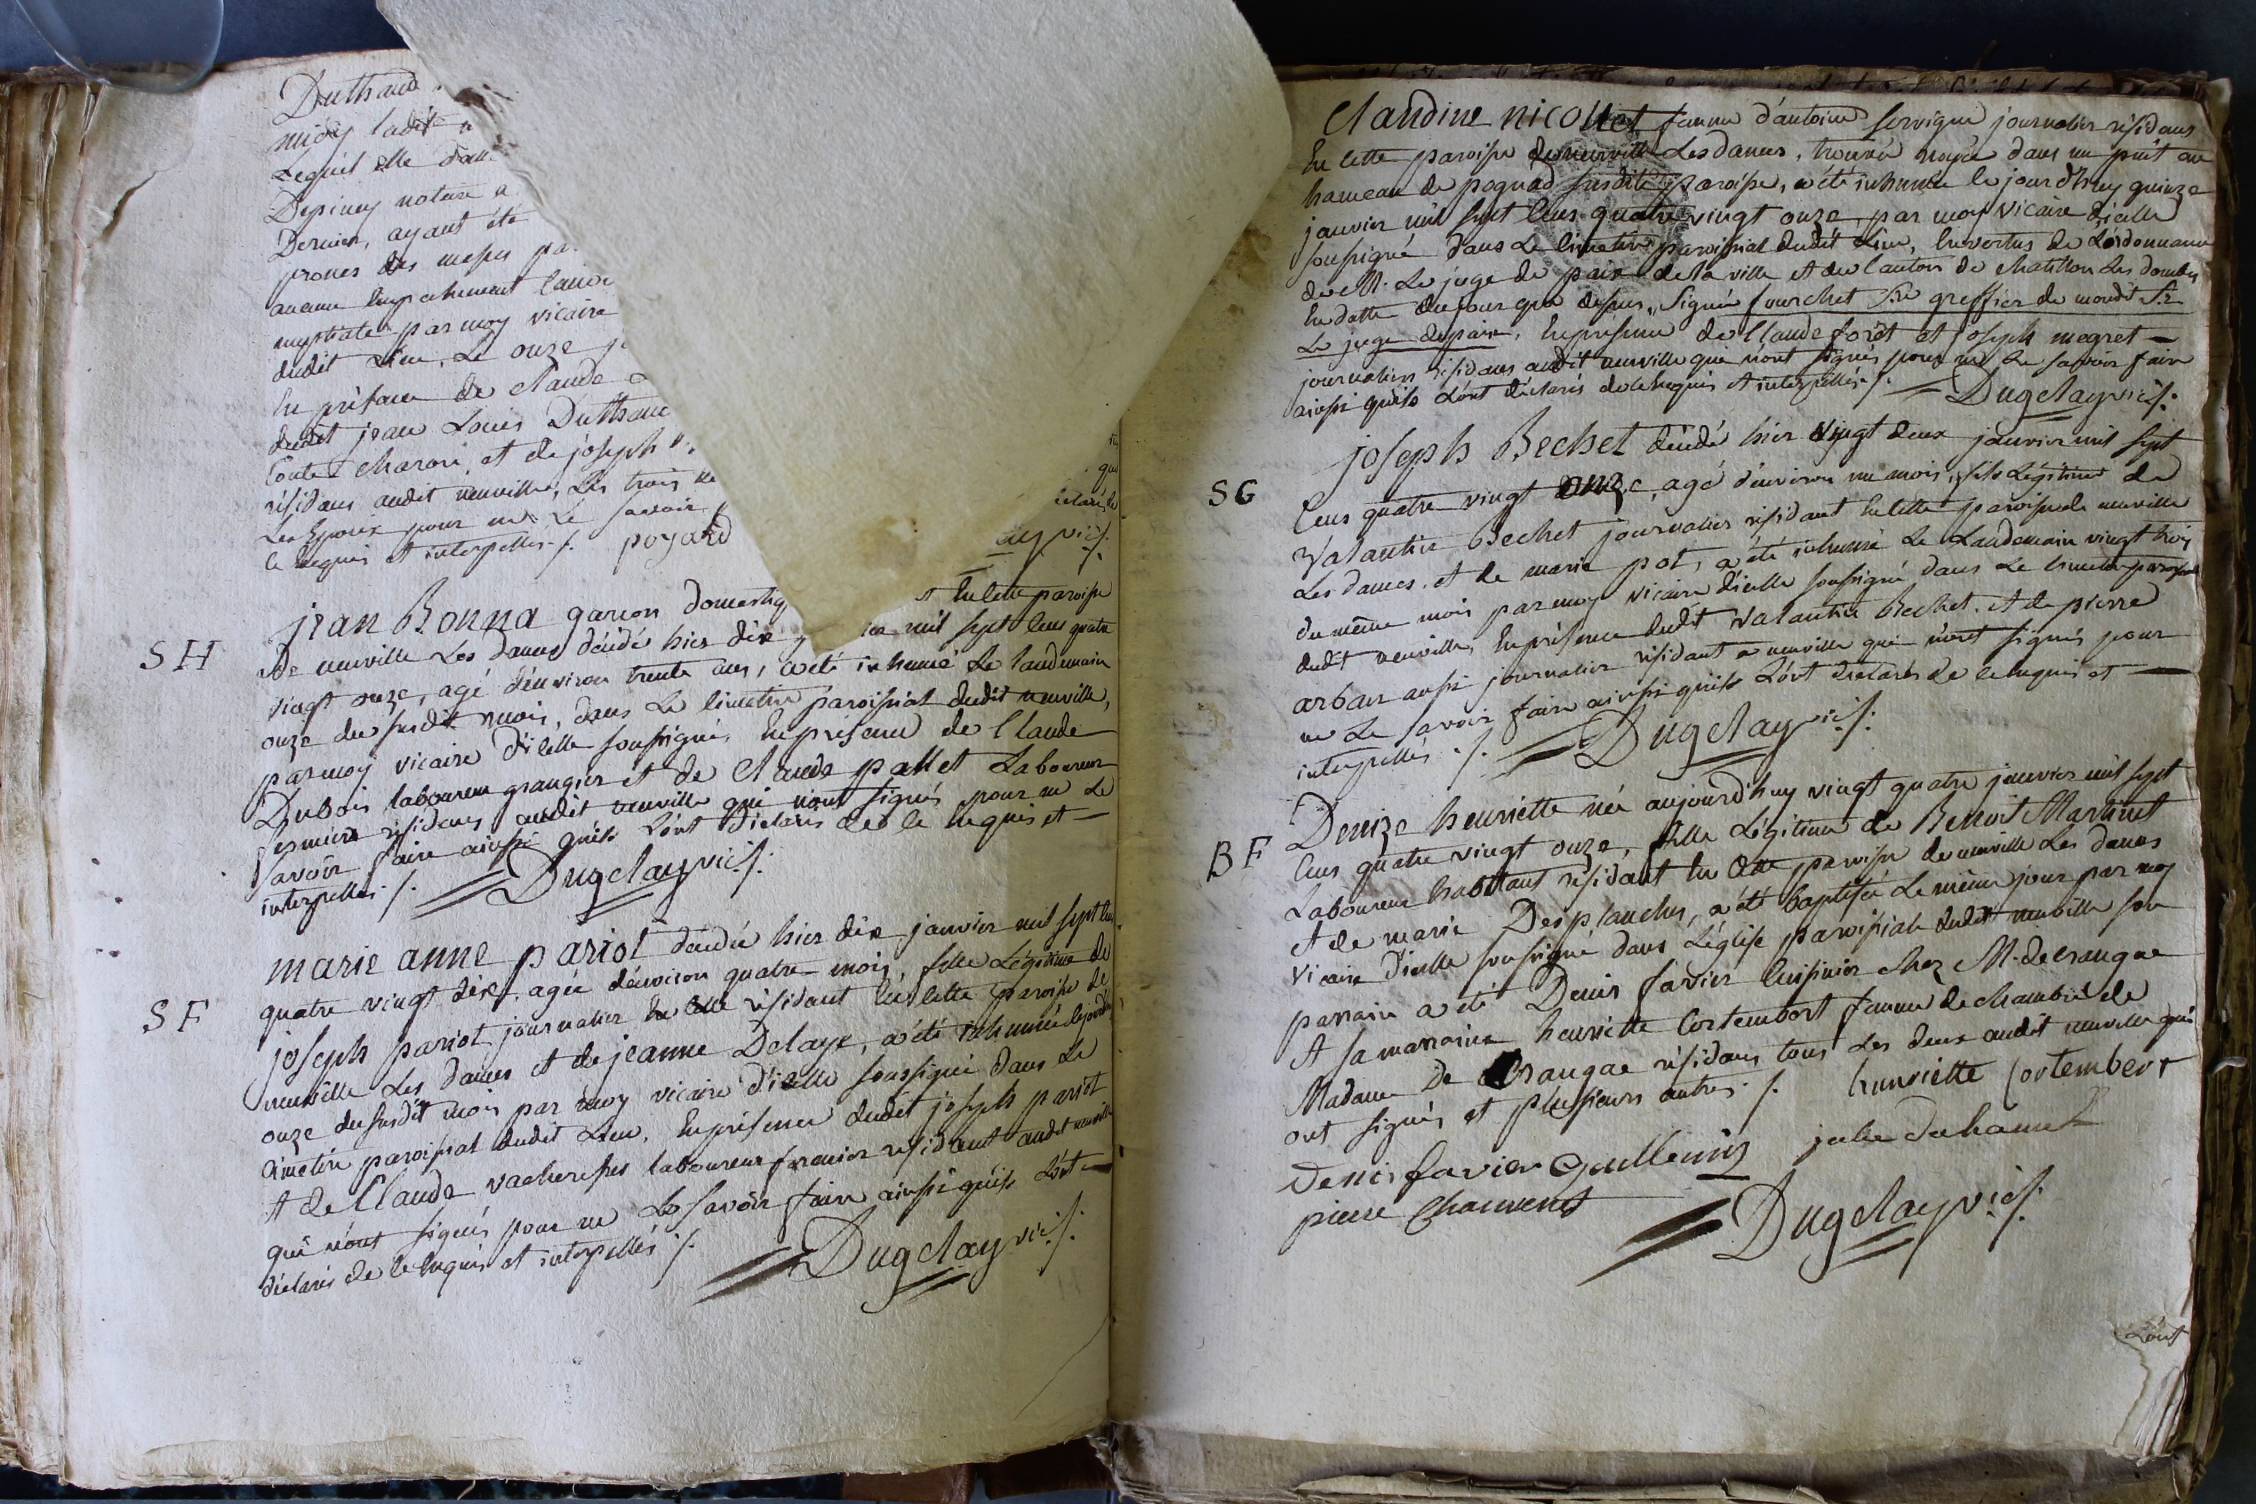 Duthaud
midy ladite
Lequel elle
Depiney notaire a
Dernier, ayant été
prones des messes par
aucun Empechement
nuptiale par moy vicaire
dudit Lieu, Le onze
En présence de claude
dudit jean Louis Duthaud
et de joseph
résidans audit neuville, Les trois
Les Epoux pour ne Le savoir
Ce Requis et interpellés ./. poyard
jean Bonna garçon domesti En cette paroisse
De neuville Les Dames décédé hier dix mil sept Cens quatre
vingt onze, agé d'environ trente ans, a été inhumé Le Landemain
onze du susdit mois, dans Le Cimetière paroissial dudit neuville,
par moy vicaire D'icelle soussigné, En présence de Claude
Dubois laboureur grangier et de Claude pallet Laboureur
fermier résidans audit neuville qui n'ont signés pour ne Le
savoir faire ainsi qu'ils L'ont Déclarés de ce Requis et —
interpellés ./. Dugclay vic ./.
SH
marie anne pariot décédée hier dix janvier mil sept Cens
quatre vingt dix, agée d'environ quatre mois, fille Légitime de
joseph pariot journalier résidant En Cette paroisse de
neuville Les Dames et de jeanne Delaye, a été inhumée
onze du susdit mois par moy vicaire d'icelle soussigné dans Le
Cimetière paroissial dudit Lieu, En présence dudit joseph pariot
Et de Claude vacheresses laboureur fermier résidant audit neuville
qui n'ont signés pour ne Le savoir faire ainsi qu'ils L'ont —
déclarés de ce Requis et interpellés ./. Dugclay vic ./.
SF
Claudine nicollet femme d'antoine servigne journalier résidans
En Cette paroisse de neuville Les Dames, trouvée noyée dans un puit au
hameau de pognad susdite paroisse, a été inhumée le jourd'huy quinze
janvier mil sept Cens quatre vingt onze, par moy vicaire D'icelle
soussigné dans Le Cimetière paroissial dudit Lieu, En vertus de L'ordonnance
de M. Le juge de paix de la ville et du Canton de chatillon Les Dombes
En datte du jour que dessus, Signée fourchet Sre greffier de mondit Sr
Le juge de paix, En présence de Claude forêt et joseph megret —
journaliers résidans audit neuville que n'ont signés pour ne Le savoir faire
ainsi qu'ils L'ont déclarés de ce Requis et interpellés ./. — Dugclay vic ./.
joseph Bechet décédé hier vingt deux janvier mil sept
Cens quatre vingt onze, agé d'environ un mois, fils Légitime de
Valantin Bechet journalier résidant En Cette paroisse de neuville
Les Dames, et de marie pot, a été inhumé Le Landemain vingt trois
du même mois par moy vicaire d'icelle soussigné dans Le Cimetière paroissial
dudit neuville, En présence dudit Valantin Bechet, et de pierre
arban aussi journalier résidant a neuville qui n'ont signés pour
ne Le savoir faire ainsi qu'ils L'ont déclarés de ce Requis et —
interpellés ./. Dugclay vic ./.
SG
Denize henriette née aujourd'huy vingt quatre janvier mil sept
Cens quatre vingt onze, fille Légitime de Benoit Martinet
Laboureur habitant résidant En Cette paroisse de neuville Les Dames
Et de marie Desplanches, a été baptisée Le même jour par moy
vicaire D'icelle soussigné dans L'église paroissiale dudit neuville son
parrain a été Denis favier Cuisinier chez M. de Crangac
Et sa marraine henriette Cortembert femme de chambre de
Madame De Crangac résidans tous Les deux audit neuville qui
ont signés et plusieurs autres ./. henriette Cortembert
Denis favier Guillemin julie duhamel
pierre Chauvend Dugclay vic ./.
BF
L'ont